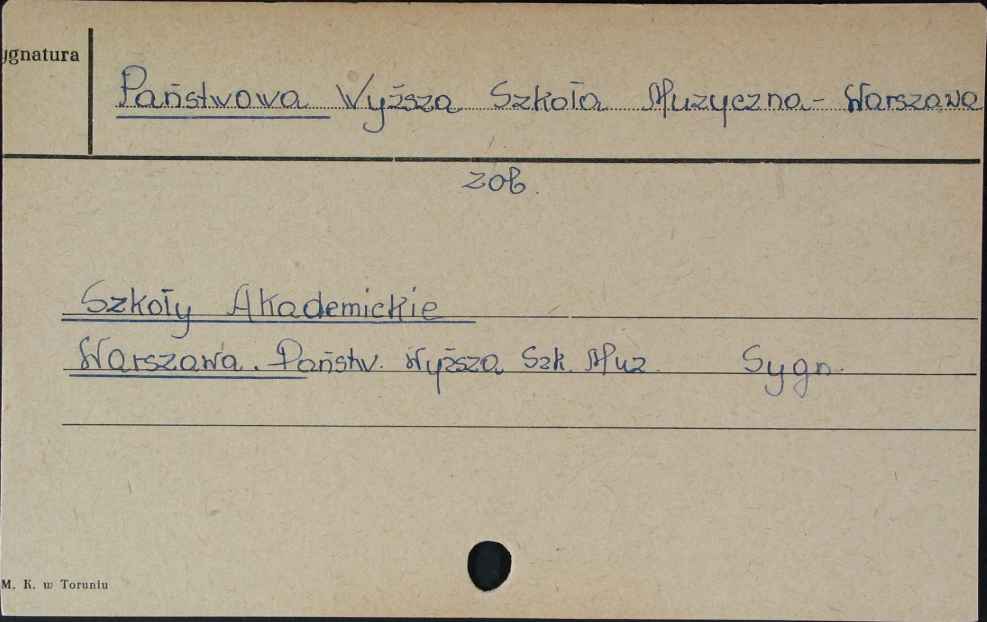 ygnatura
Państwowa Wyższa Szkoła Muzyczna - Warszawa
zob.
Szkoły Akademickie
Warszawa. Państw. Wyższa Szk. Muz. Sygn.
M. K. w Toruniu